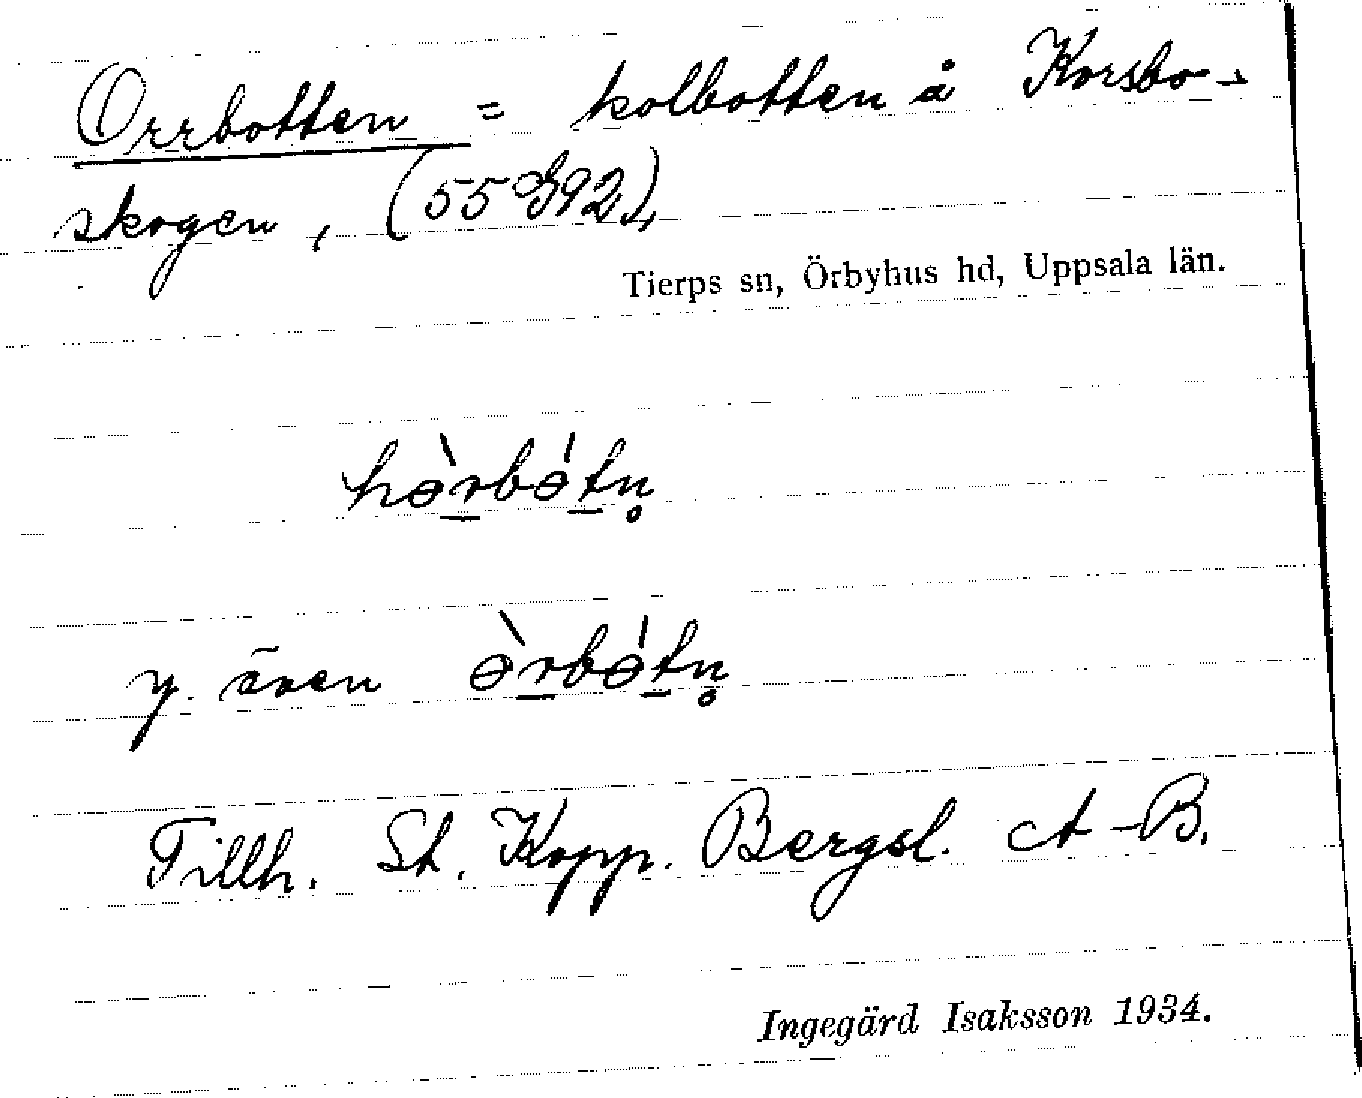 Orrbotten = kolbotten å Korsbo-
skogen, (55 G92),
Tierps sn, Örbyhus hd, Uppsala län.
hɵ̀rbɵ́tn̥
y. även ɵ̀rbɵ́tn̥
Tillh. St. Kopp. Bergsl. A-B.
Ingegärd Isaksson 1934.